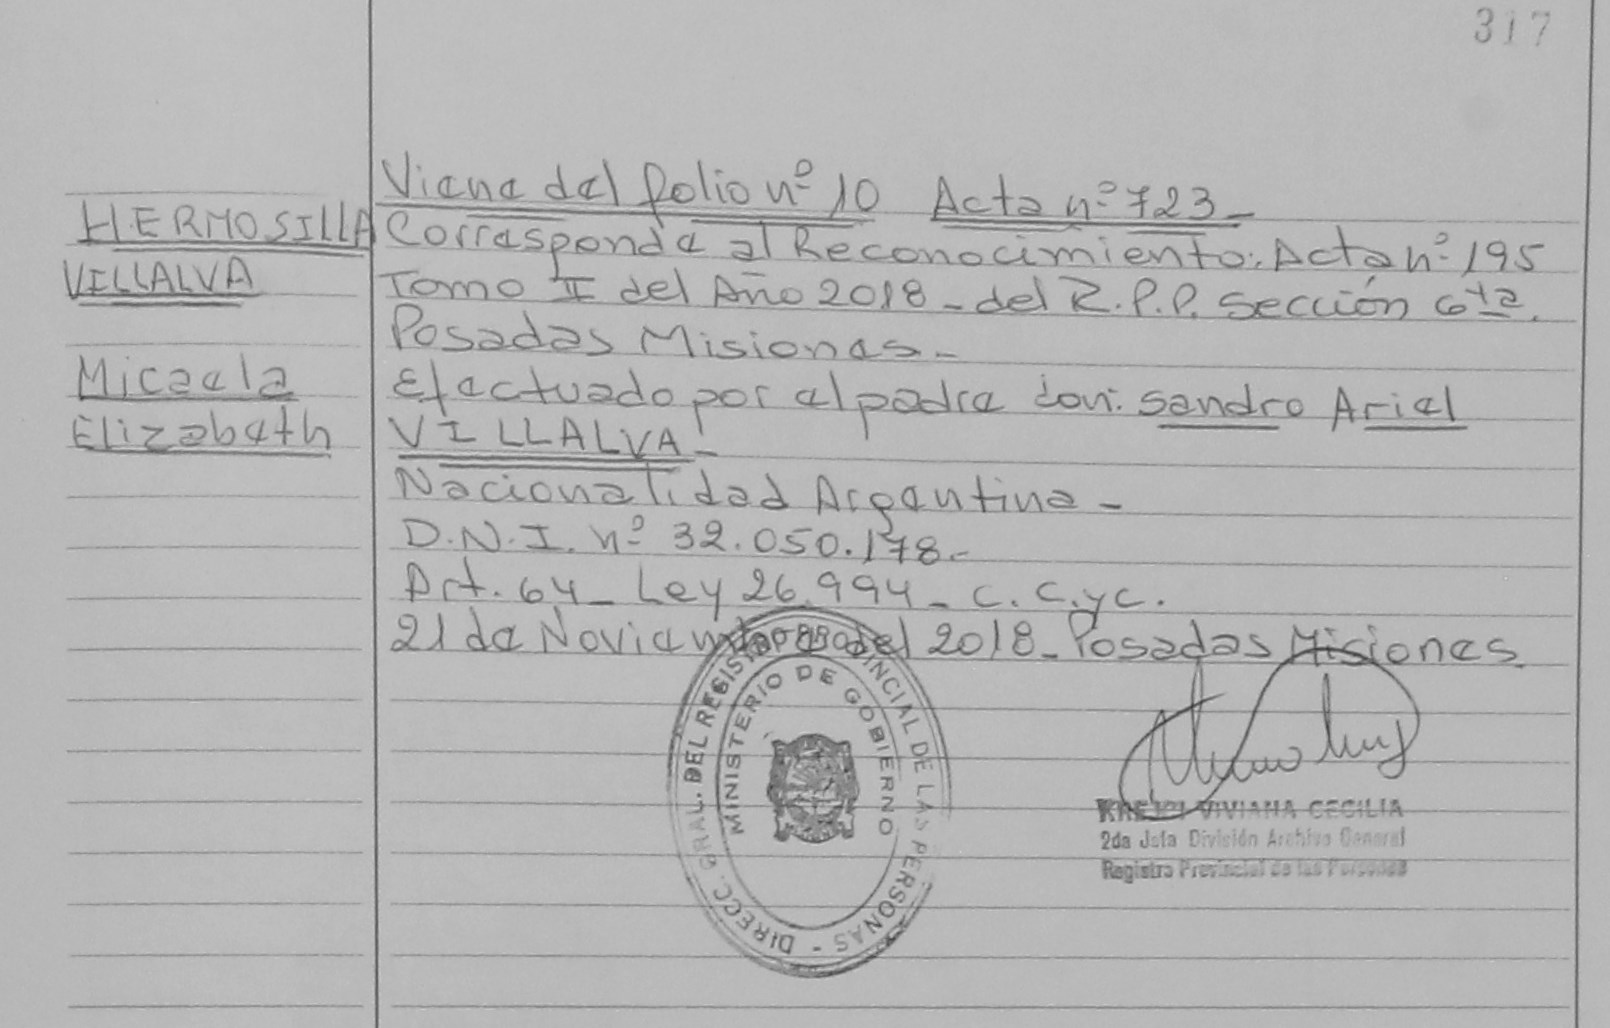 317
HERMOSILLA
VILLALVA
Micaela
Elizabeth
Viene del folio nº 10 Acta nº 723_
Corresponde al Reconocimiento: Acta nº 195
Tomo II del Año 2018_ del R.P.P. Sección 6ta.
Posadas Misiones_
Efectuado por el padre don: Sandro Ariel
VILLALVA_
Nacionalidad Argentina_
D.N.I. nº 32.050.178._
Art. 64_ Ley 26.994_ C.C.yC.
21 de Noviembre del 2018_ Posadas Misiones
DIRECC. GRAL. DEL REGISTRO PROVINCIAL DE LAS PERSONAS -
MINISTERIO DE GOBIERNO
VIVIANA CECILIA
2da Jefa División Archivo General
Registro Provincial de las Personas